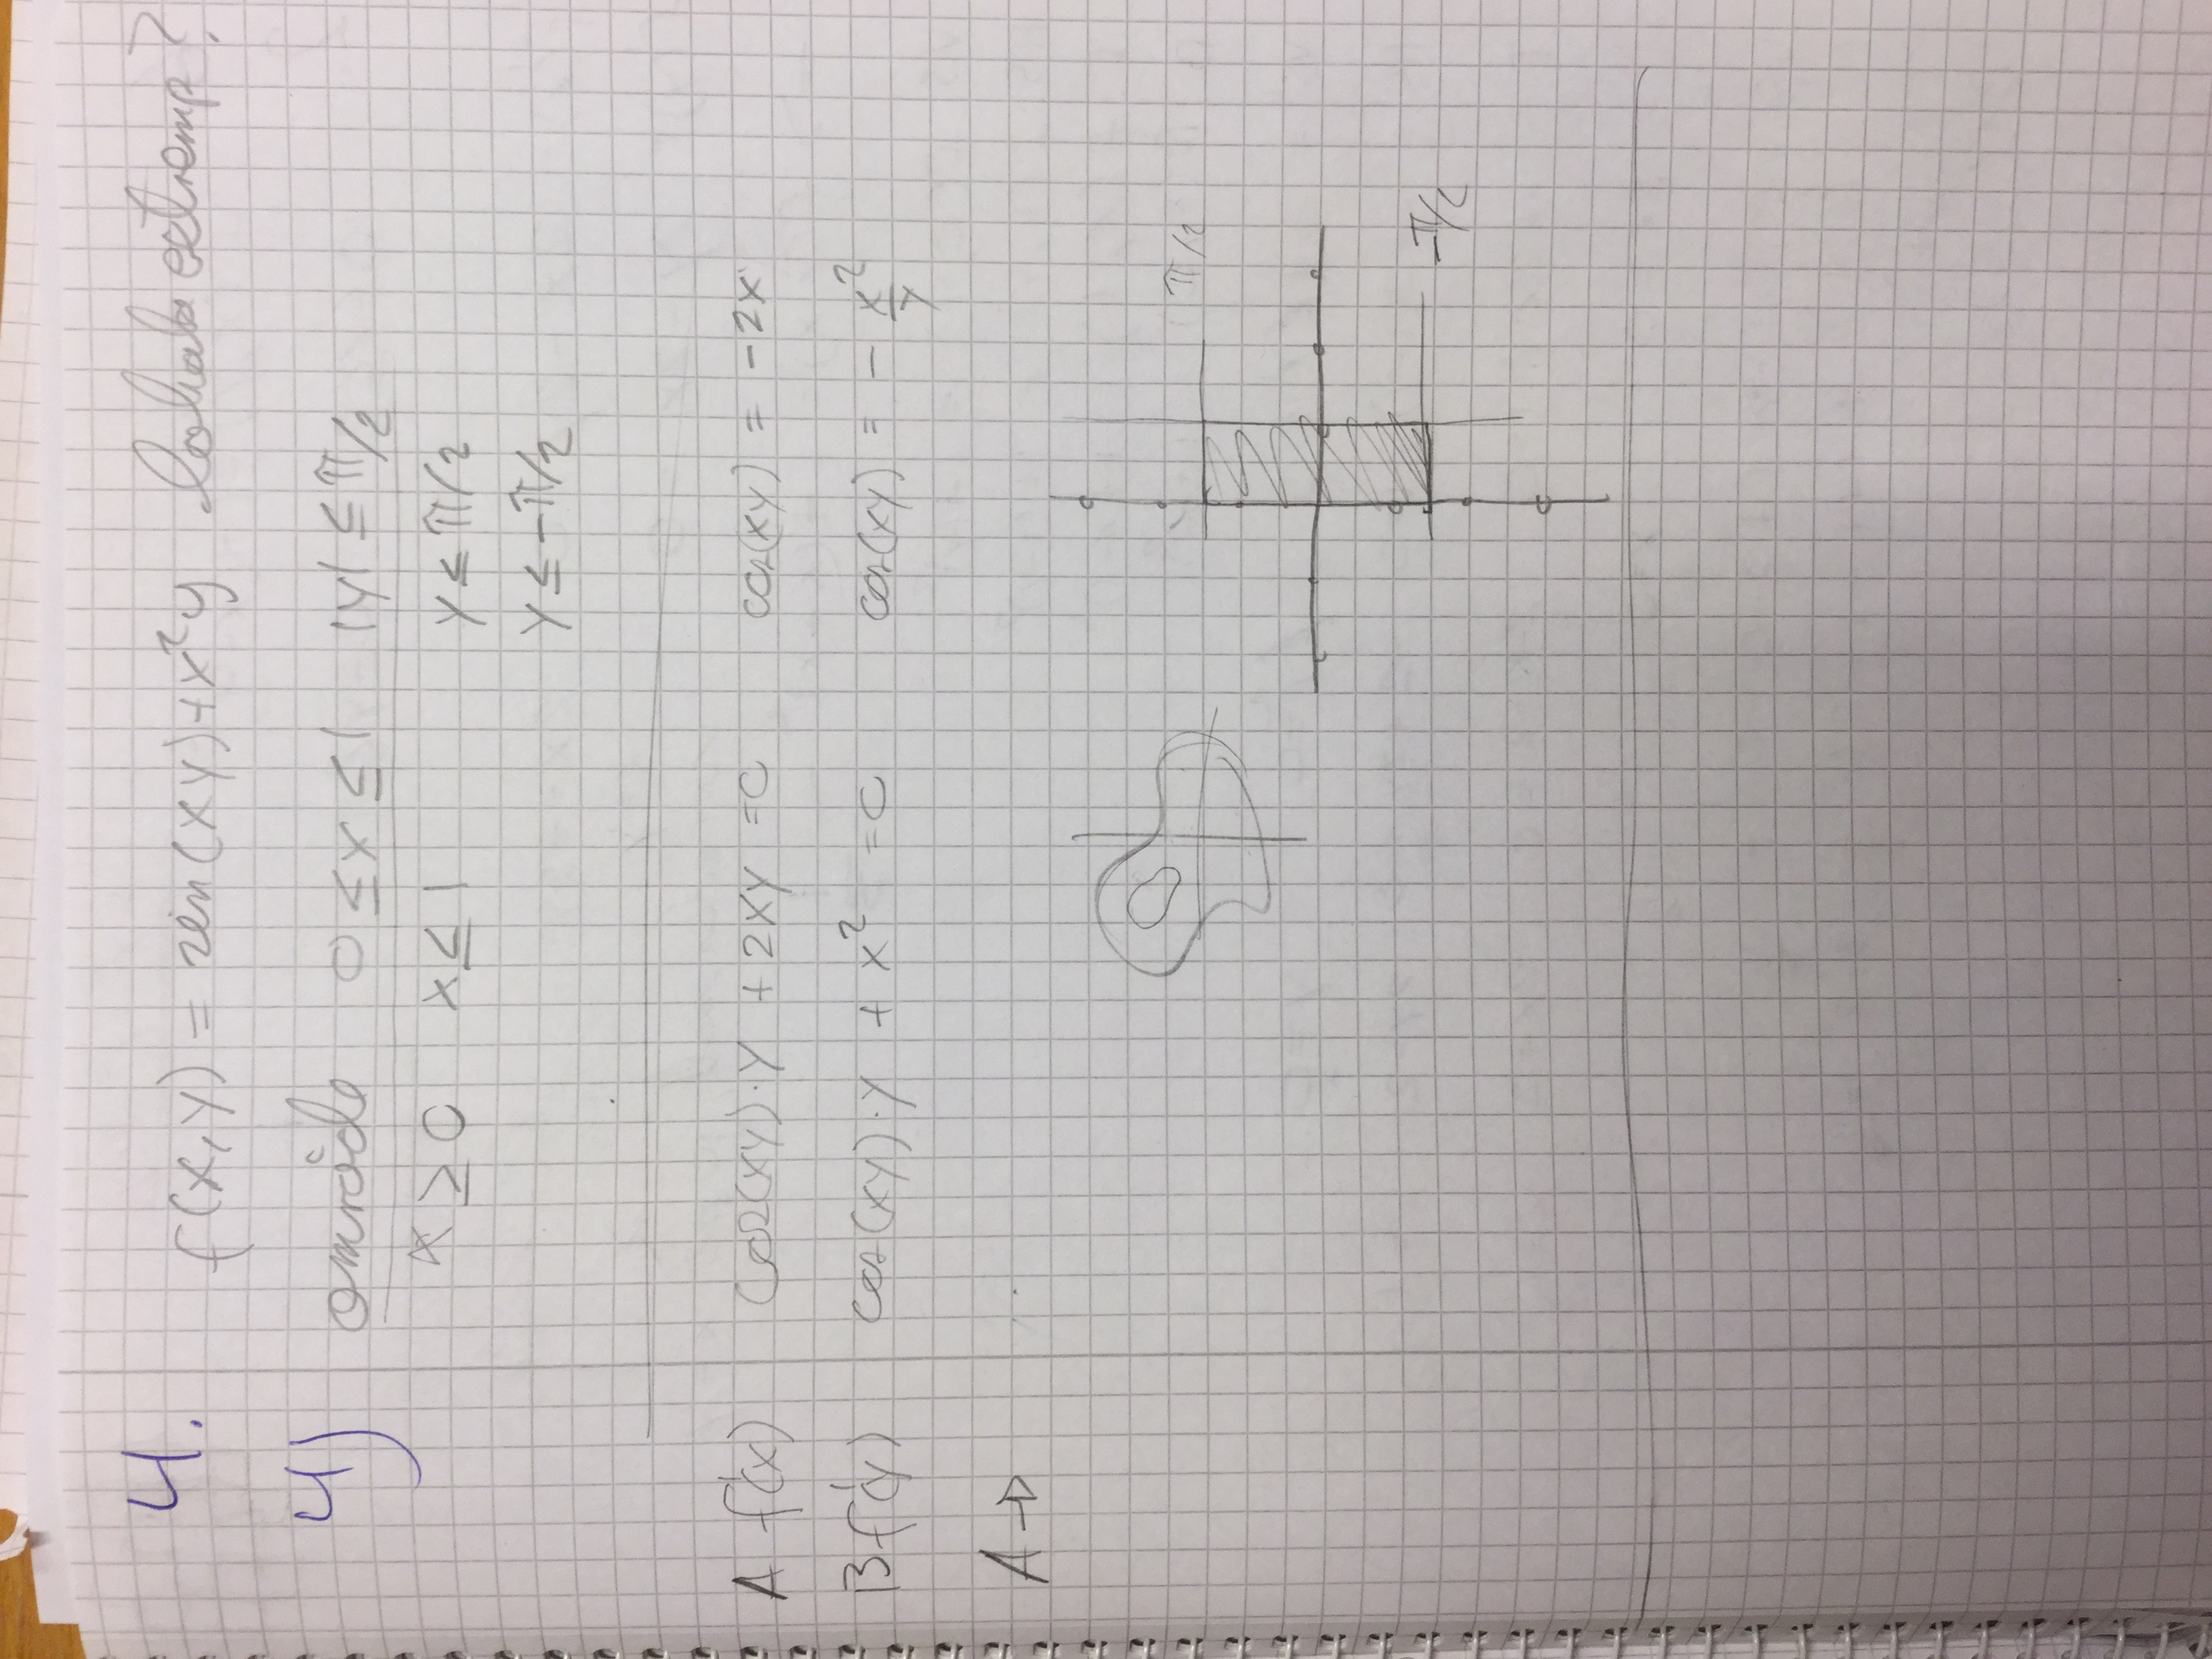 4. f(x,y) = sin(xy)+x²y lokala extremp?
4) område 0 ≤ x ≤ 1 |y| ≤ π/2
x ≥ 0 x ≤ 1 y ≤ π/2
y ≤ -π/2
A f'(x) cos(xy)·y + 2xy = 0 cos(xy) = -2x
B f'(y) cos(xy)·y + x² = 0 cos(xy) = - x²/y
A →
π/2
-π/2